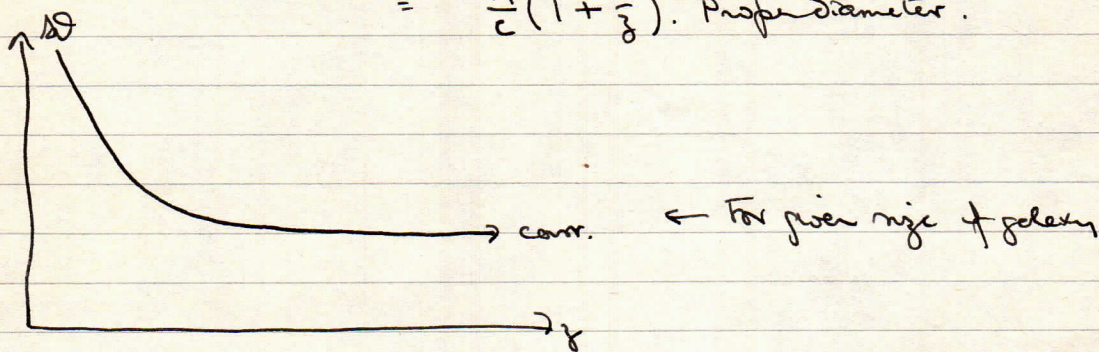 = H/c (1 + 1/z). Proper diameter.
Δθ
→ const.
← For given size of galaxy
z